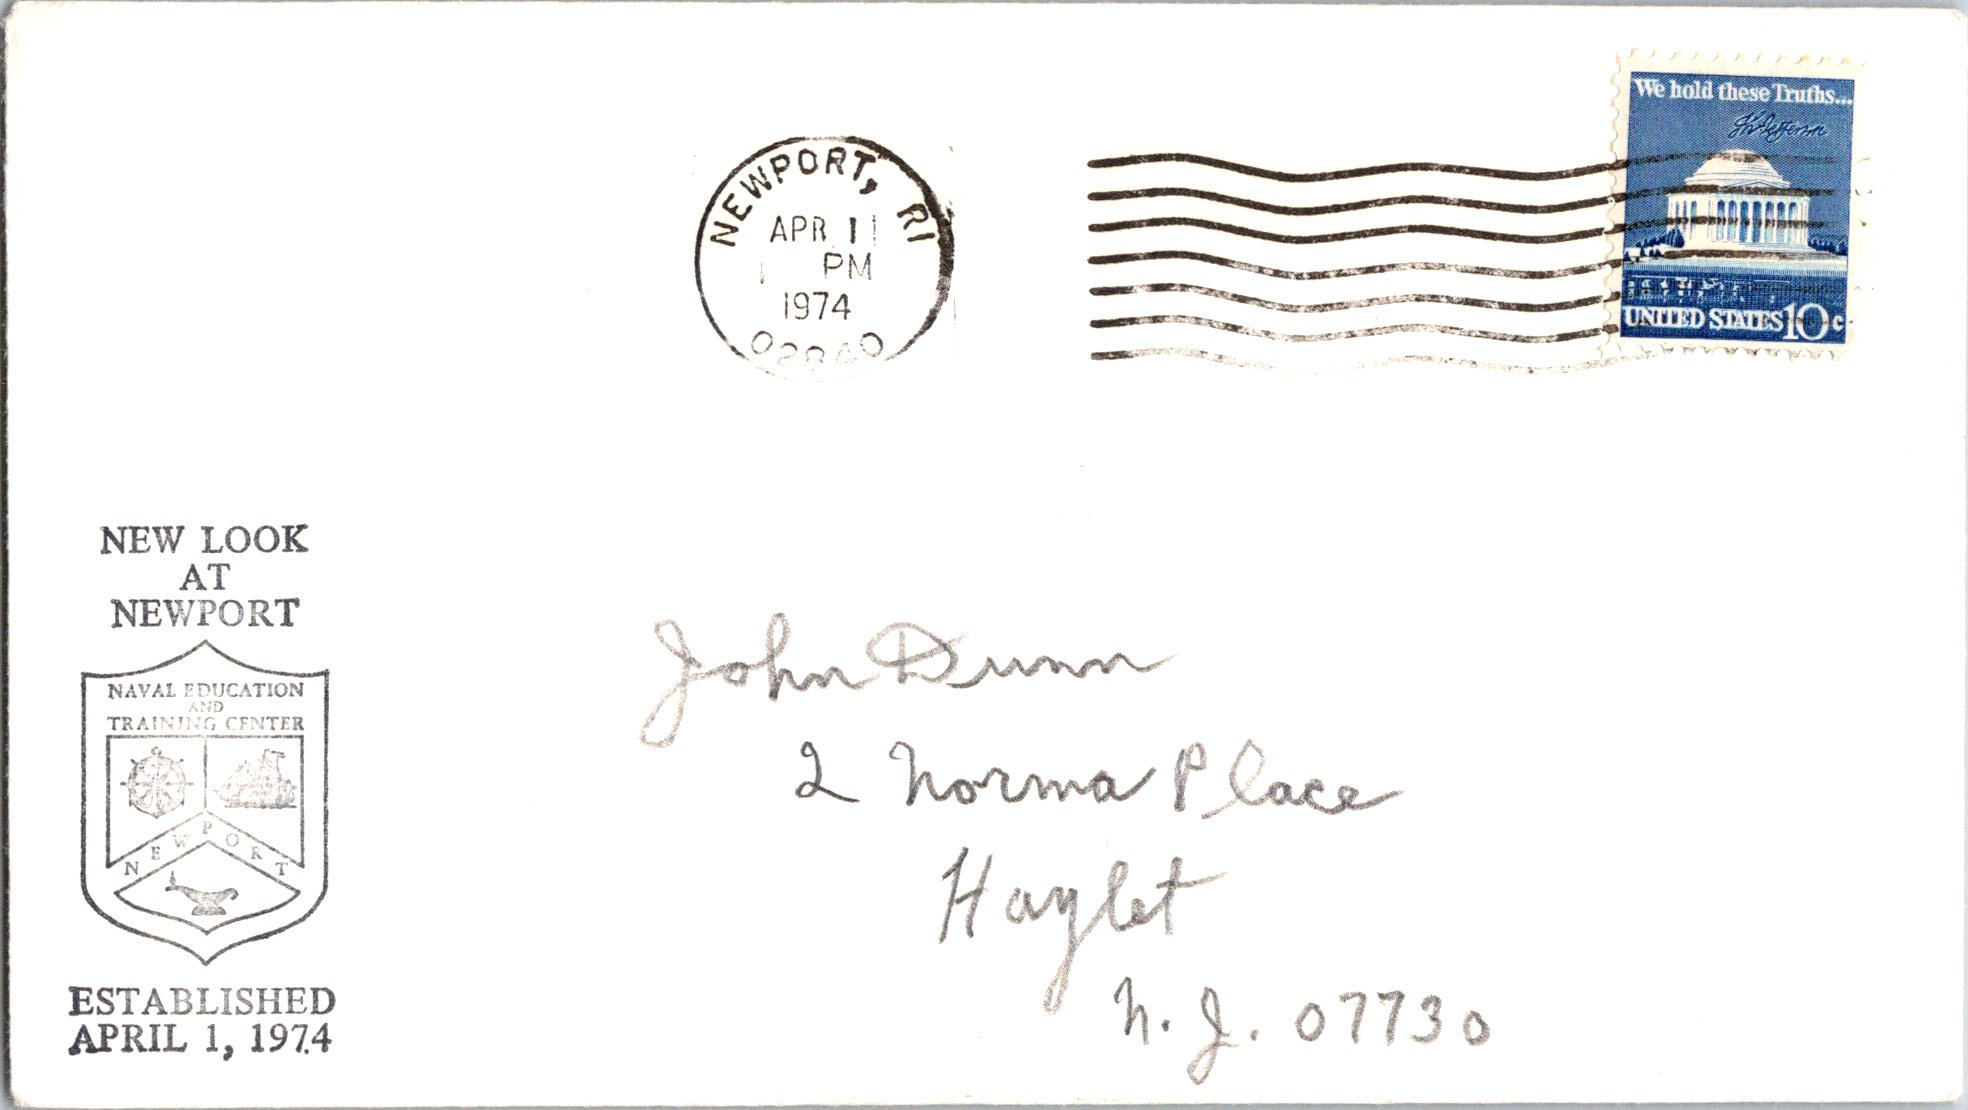 NEWPORT, RI
APR 1
PM
1974
02840
We hold these Truths...
Th Jefferson
UNITED STATES 10c
NEW LOOK
AT
NEWPORT
NAVAL EDUCATION
AND
TRAINING CENTER
NEWPORT
ESTABLISHED
APRIL 1, 1974
John Dunn
2 Norma Place
Hazlet
N. J. 07730